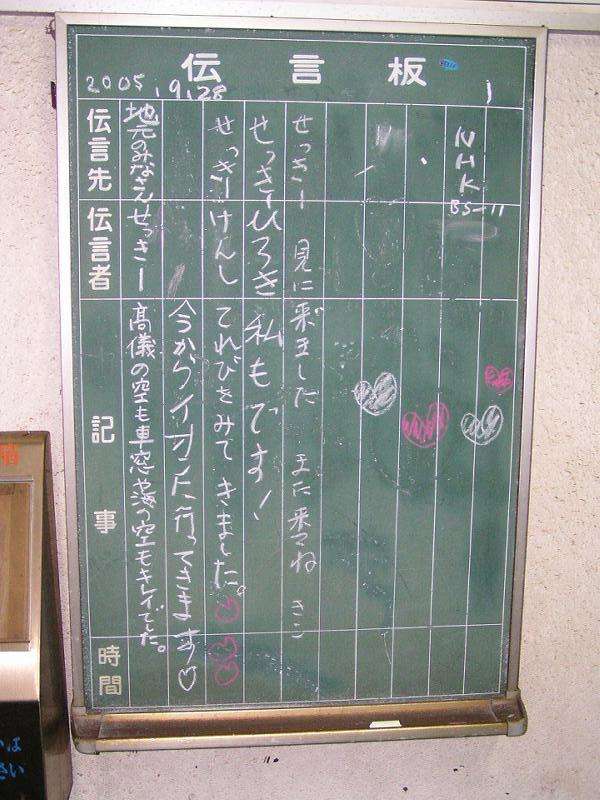 伝言板
2005.9.28
伝言先
伝言者
記事
時間
地元のみなさん せっきー 高儀の空も車窓や海の空もキレイでした。
今からイオンに行ってきます♡
せっきーけんし てれびをみて きました。
せっきーひろき 私もです!
せっきー 見に来ました また来てね
NHK
BS-11